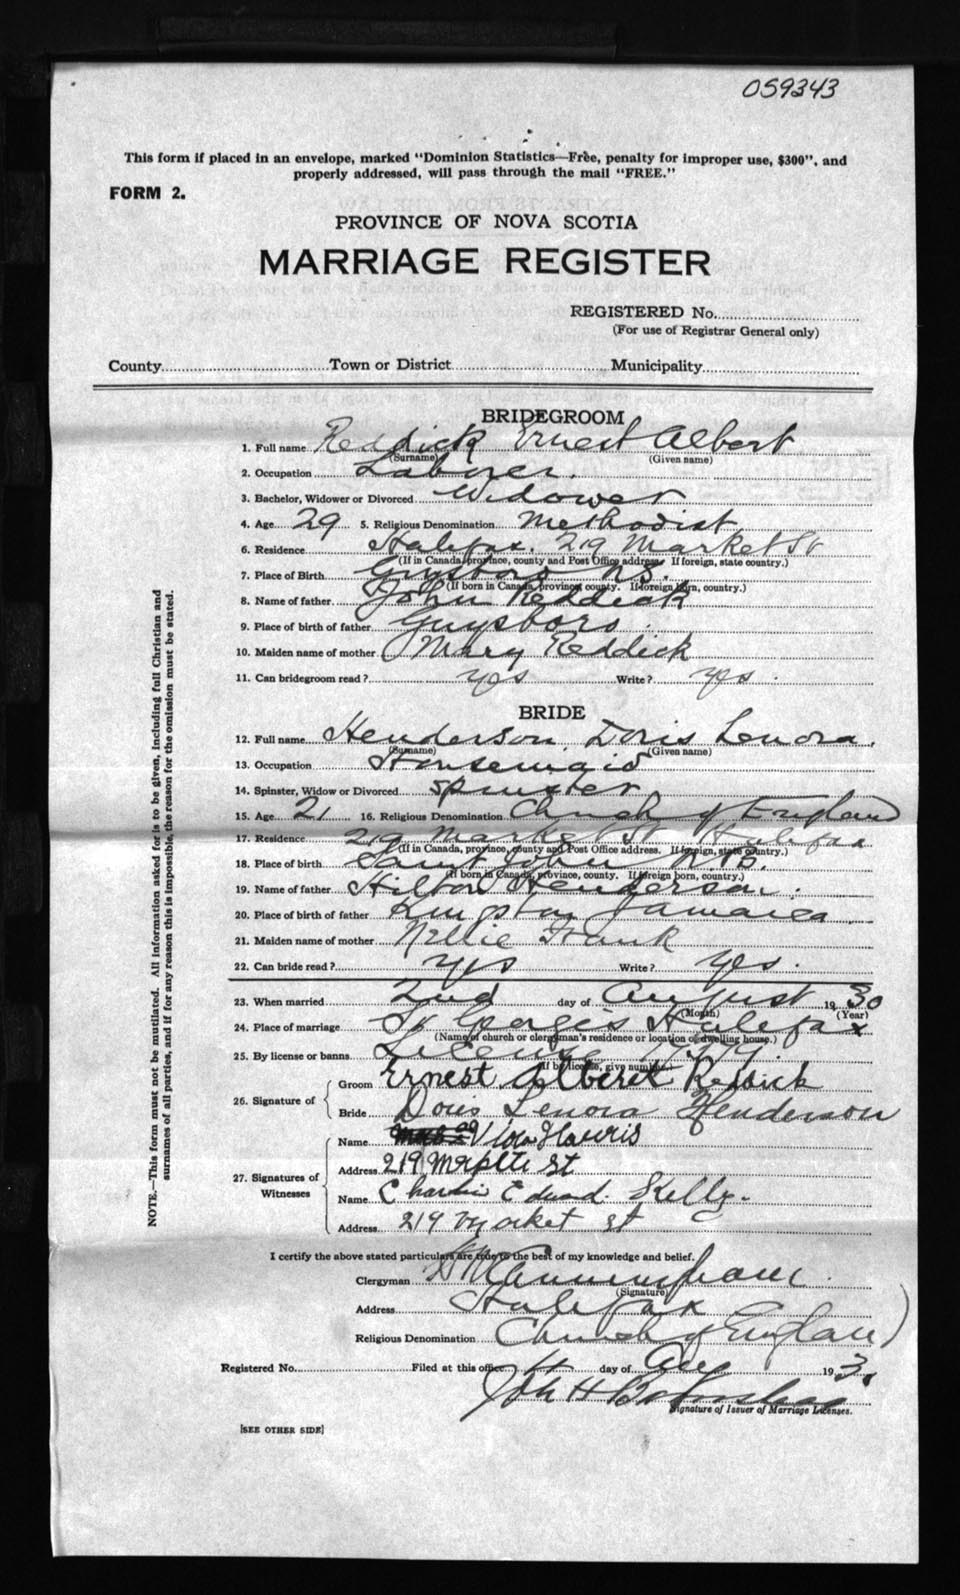 059343
This form if placed in an envelope, marked "Dominion Statistics—Free, penalty for improper use, $300", and
properly addressed, will pass through the mail "FREE."
FORM 2.
PROVINCE OF NOVA SCOTIA
MARRIAGE REGISTER
REGISTERED No.
(For use of Registrar General only)
County Town or District Municipality
BRIDEGROOM
1. Full name Reddick Ernest Albert
(Surname) (Given name)
2. Occupation Laborer.
3. Bachelor, Widower or Divorced Widower
4. Age 29 5. Religious Denomination Methodist
6. Residence Halifax. 219 Market St
(If in Canada, province, county and Post Office address. If foreign, state country.)
7. Place of Birth Guysboro N.S.
(If born in Canada, province, county. If foreign born, country.)
8. Name of father John Reddick
9. Place of birth of father Guysboro
10. Maiden name of mother Mary Reddick
11. Can bridegroom read? yes Write? yes
BRIDE
12. Full name Henderson, Doris Lenora.
(Surname) (Given name)
13. Occupation Housemaid
14. Spinster, Widow or Divorced Spinster
15. Age 21 16. Religious Denomination Church of England
17. Residence 219 Market St Halifax
(If in Canada, province, county and Post Office address. If foreign, state country.)
18. Place of birth Saint John N.B.
(If born in Canada, province, county. If foreign born, country.)
19. Name of father Hilton Henderson.
20. Place of birth of father Kingston Jamaica
21. Maiden name of mother Nellie Frank
22. Can bride read? yes Write? yes.
23. When married 2nd day of August 1930
(Month) (Year)
24. Place of marriage St Georges Halifax
(Name of church or clergyman's residence or location of dwelling house.)
25. By license or banns License
(If by license, give number.)
26. Signature of Groom Ernest Albert Reddick
Bride Doris Lenora Henderson
27. Signatures of Witnesses Name Viola Harris
Address 219 St
Name Edward Kelly.
Address 219 Market St
I certify the above stated particulars are true to the best of my knowledge and belief.
Clergyman Cunningham
(Signature)
Address Halifax
Religious Denomination Church of England
Registered No. Filed at this office 4 day of Aug 193
Signature of Issuer of Marriage Licenses.
[SEE OTHER SIDE]
NOTE.—This form must not be mutilated. All information asked for is to be given, including full Christian and
surnames of all parties, and if for any reason this is impossible, the reason for the omission must be stated.